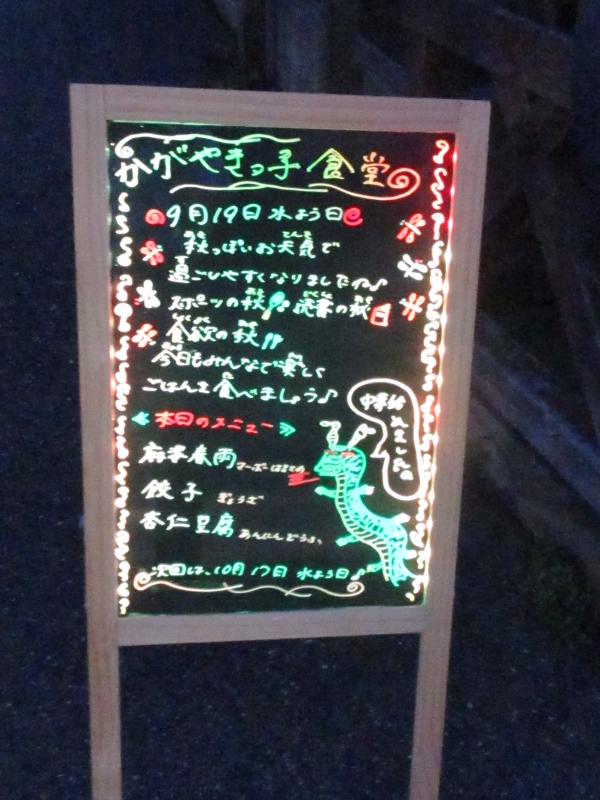 かがやきっ子食堂
9月19日水よう日
秋っぽいお天気で
過ごしやすくなりましたね♪
スポーツの秋 読書の秋
食欲の秋!!
今日もみんなで楽しく
ごはんを食べましょう♪
本日のメニュー
麻婆春雨 マーボーはるさめ
餃子 ぎょうざ
杏仁豆腐 あんにんどうふ
次回は、10月17日 水よう日♪